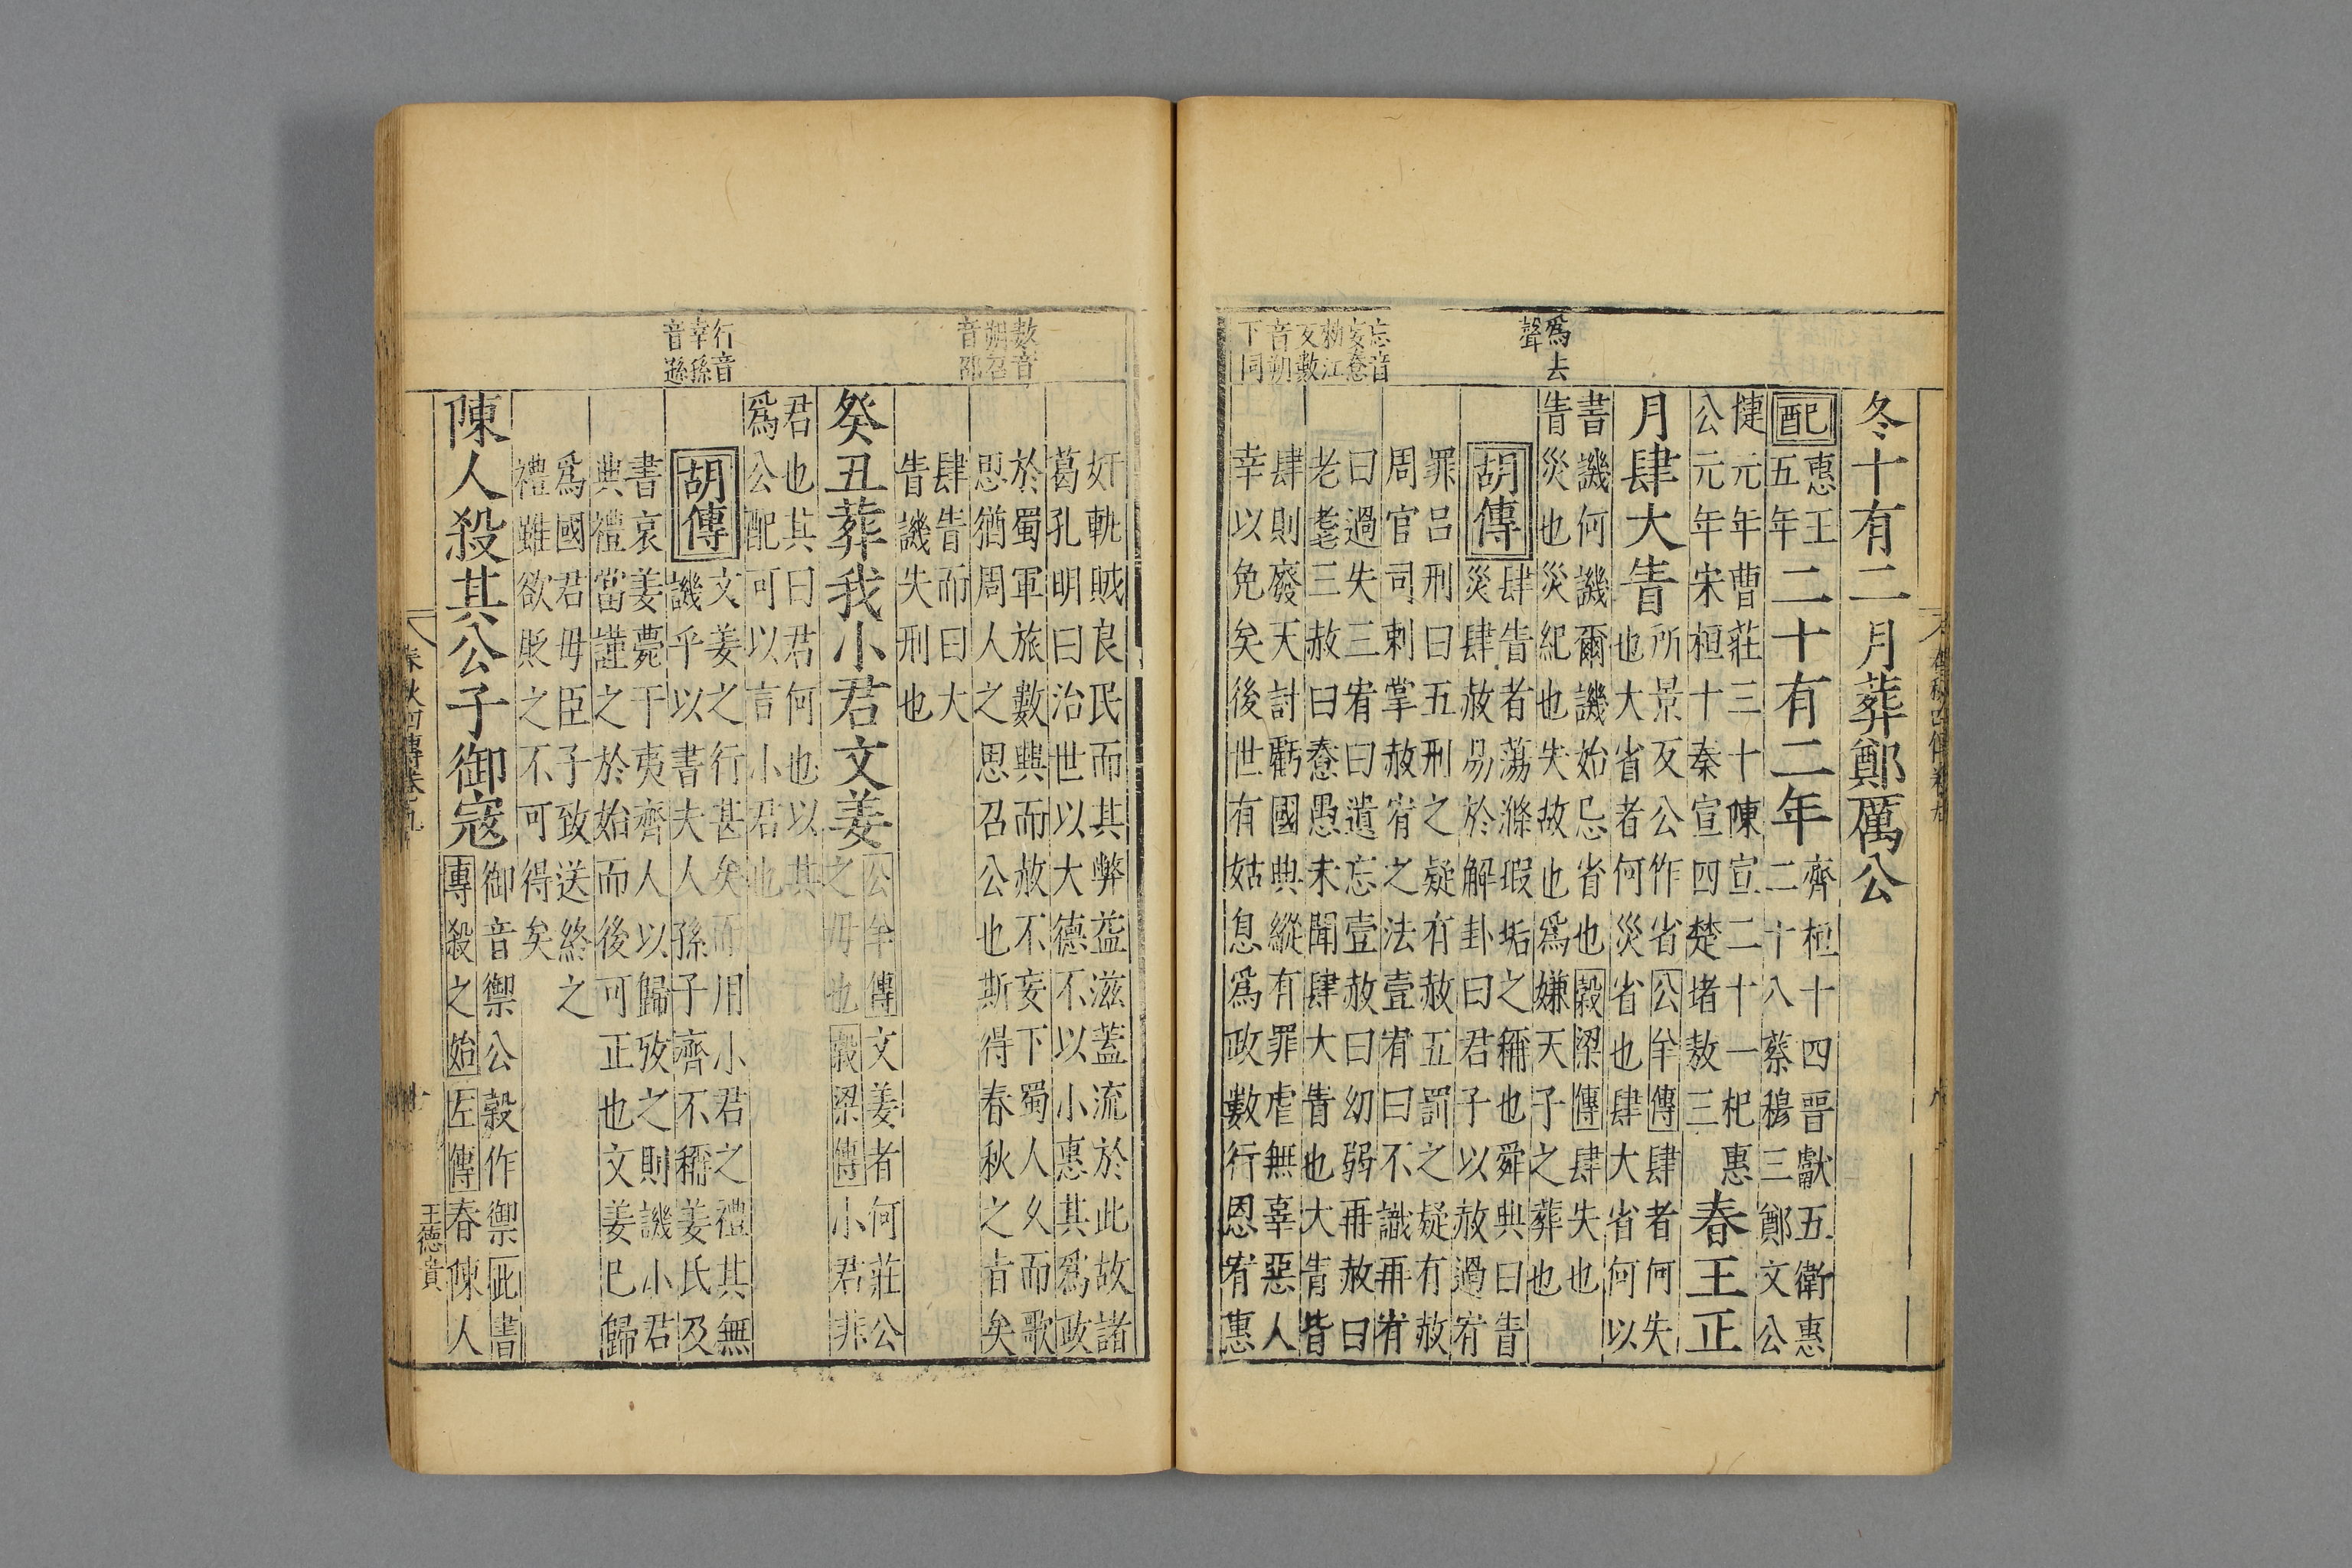 忘音妄惷
敕江反數
音朔下同
為去聲
冬十有二月葬鄭厲公
配惠王
五年二十有二年齊桓十四晉獻五衛惠
二十八蔡穆三鄭文公
㨗元年曹莊三十陳宣二十一杞惠
公元年宋桓十秦宣四楚堵敖三春王正
月肆大眚所景反公作省公羊傳肆者何失
也大省者何災省也肆大省何以
書譏何譏爾譏始忌省也穀梁傳肆失也
眚災也災紀也失故也為嫌天子之葬也
胡傳肆眚者蕩滌瑕垢之稱也舜典曰眚
災肆赦易於解卦曰君子以赦過宥
罪呂刑曰五刑之疑有赦五罰之疑有赦
周官司剌掌赦宥之法壹宥曰不識再宥
曰過失三宥曰遺忘壹赦曰幼弱再赦曰
老耄三赦曰惷愚未聞肆大眚也大眚皆
肆則廢天討虧國典縱有罪虐無辜惡人
幸以免矣後世有姑息為政數行恩宥惠
數音朔召音邵
行音幸孫音遜
奸軌賊良民而其弊益滋蓋流於此故諸
葛孔明曰治世以大德不以小惠其為政
於蜀軍旅數興而赦不妄下蜀人久而歌
思猶周人之思召公也斯得春秋之旨矣
肆眚而曰大
眚譏失刑也
癸丑葬我小君文姜公羊傳文姜者何莊公
之母也穀梁傳小君非
君也其曰君何也以其
為公配可以言小君也
胡傳文姜之行甚矣而用小君之禮其無
譏乎以書夫人孫子齊不稱姜氏及
書哀姜薨于夷齊人以歸攷之則譏小君
典禮當謹之於始而後可正也文姜已歸
為國君毋臣子致送終之
禮雖欲貶之不可得矣
陳人殺其公子御寇御音禦公穀作禦此書
專殺之始左傳春陳人
春秋四傳卷九